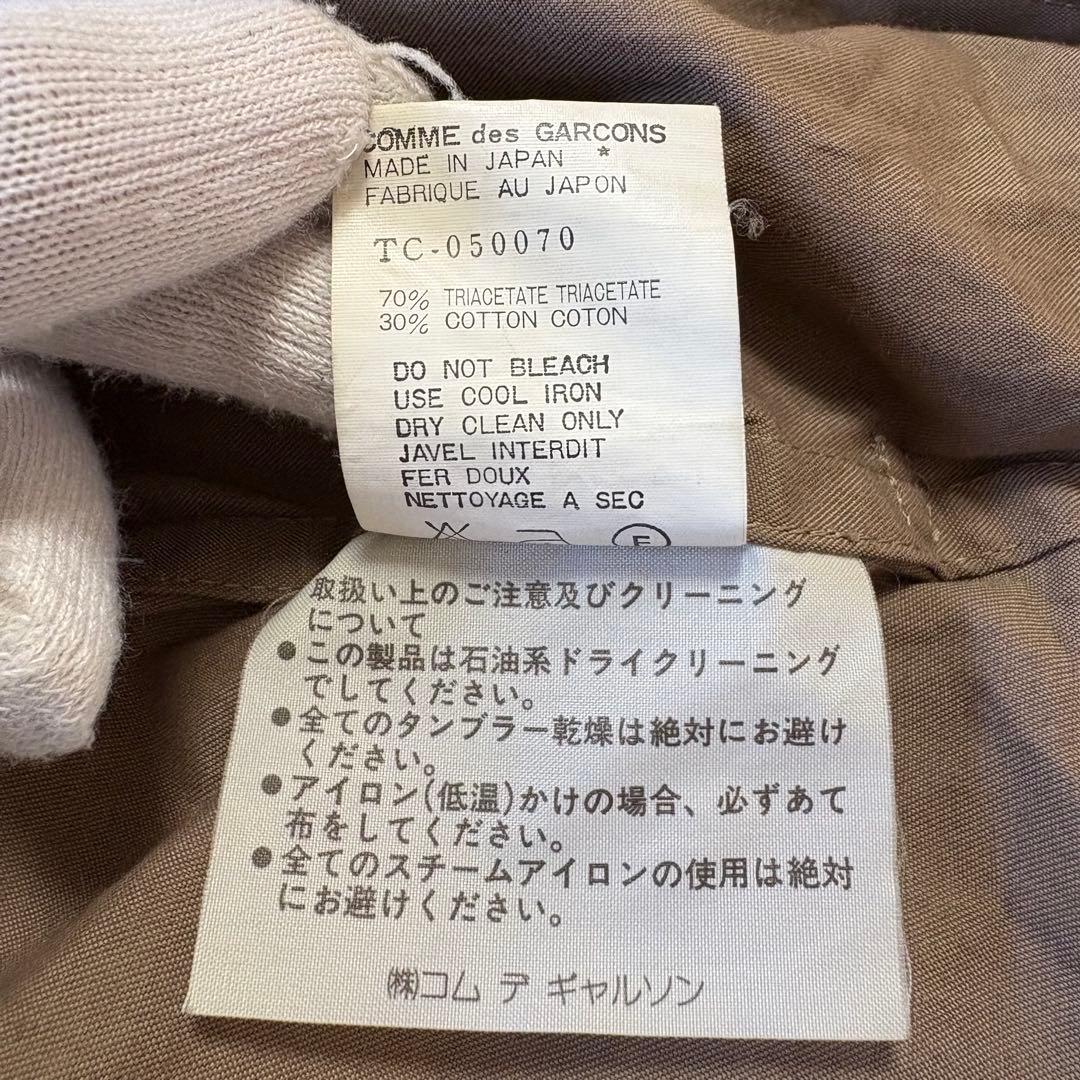 COMME des GARCONS
MADE IN JAPAN *
FABRIQUE AU JAPON
TC-050070
70% TRIACETATE TRIACETATE
30% COTTON COTON
DO NOT BLEACH
USE COOL IRON
DRY CLEAN ONLY
JAVEL INTERDIT
FER DOUX
NETTOYAGE A SEC
F
取扱い上のご注意及びクリーニング
について
●この製品は石油系ドライクリーニング
でしてください。
●全てのタンブラー乾燥は絶対にお避け
ください。
●アイロン(低温)かけの場合、必ずあて
布をしてください。
●全てのスチームアイロンの使用は絶対
にお避けください。
㈱コム デ ギャルソン